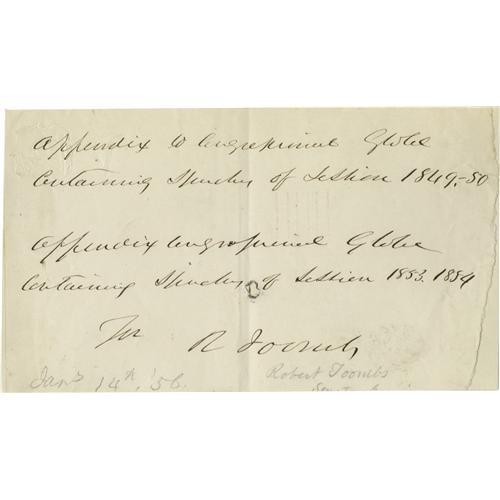 Appendix to Congressional Globe
Containing Speeches of Session 1849-50
Appendix Congressional Globe
Containing Speeches of Session 1853.1854
for R Toombs
Jany 14th, '56. Robert Toombs